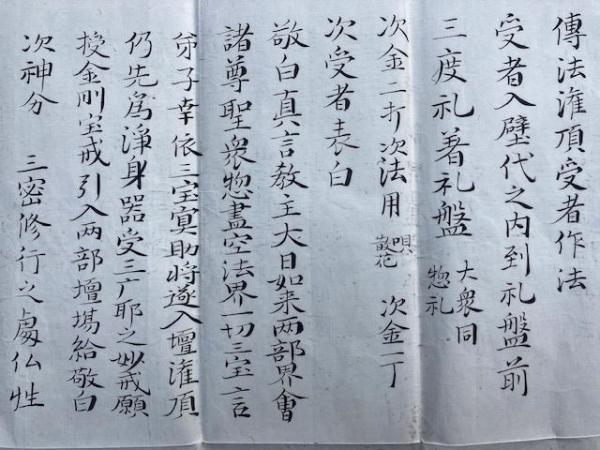 傳法潅頂受者作法
受者入壁代之内到礼盤前
三度礼著礼盤 大衆同惣礼
次金二打次法用 唄散花 次金一丁
次受者表白
敬白真言教主大日如来両部界會
諸尊聖衆惣盡空法界一切三宝言
弟子幸依三宝冥助将遂入壇潅頂
仍先為浄身器受三广耶之妙戒願
授金剛宝戒引入两部壇場給敬白
次神分 三密修行之處仏性